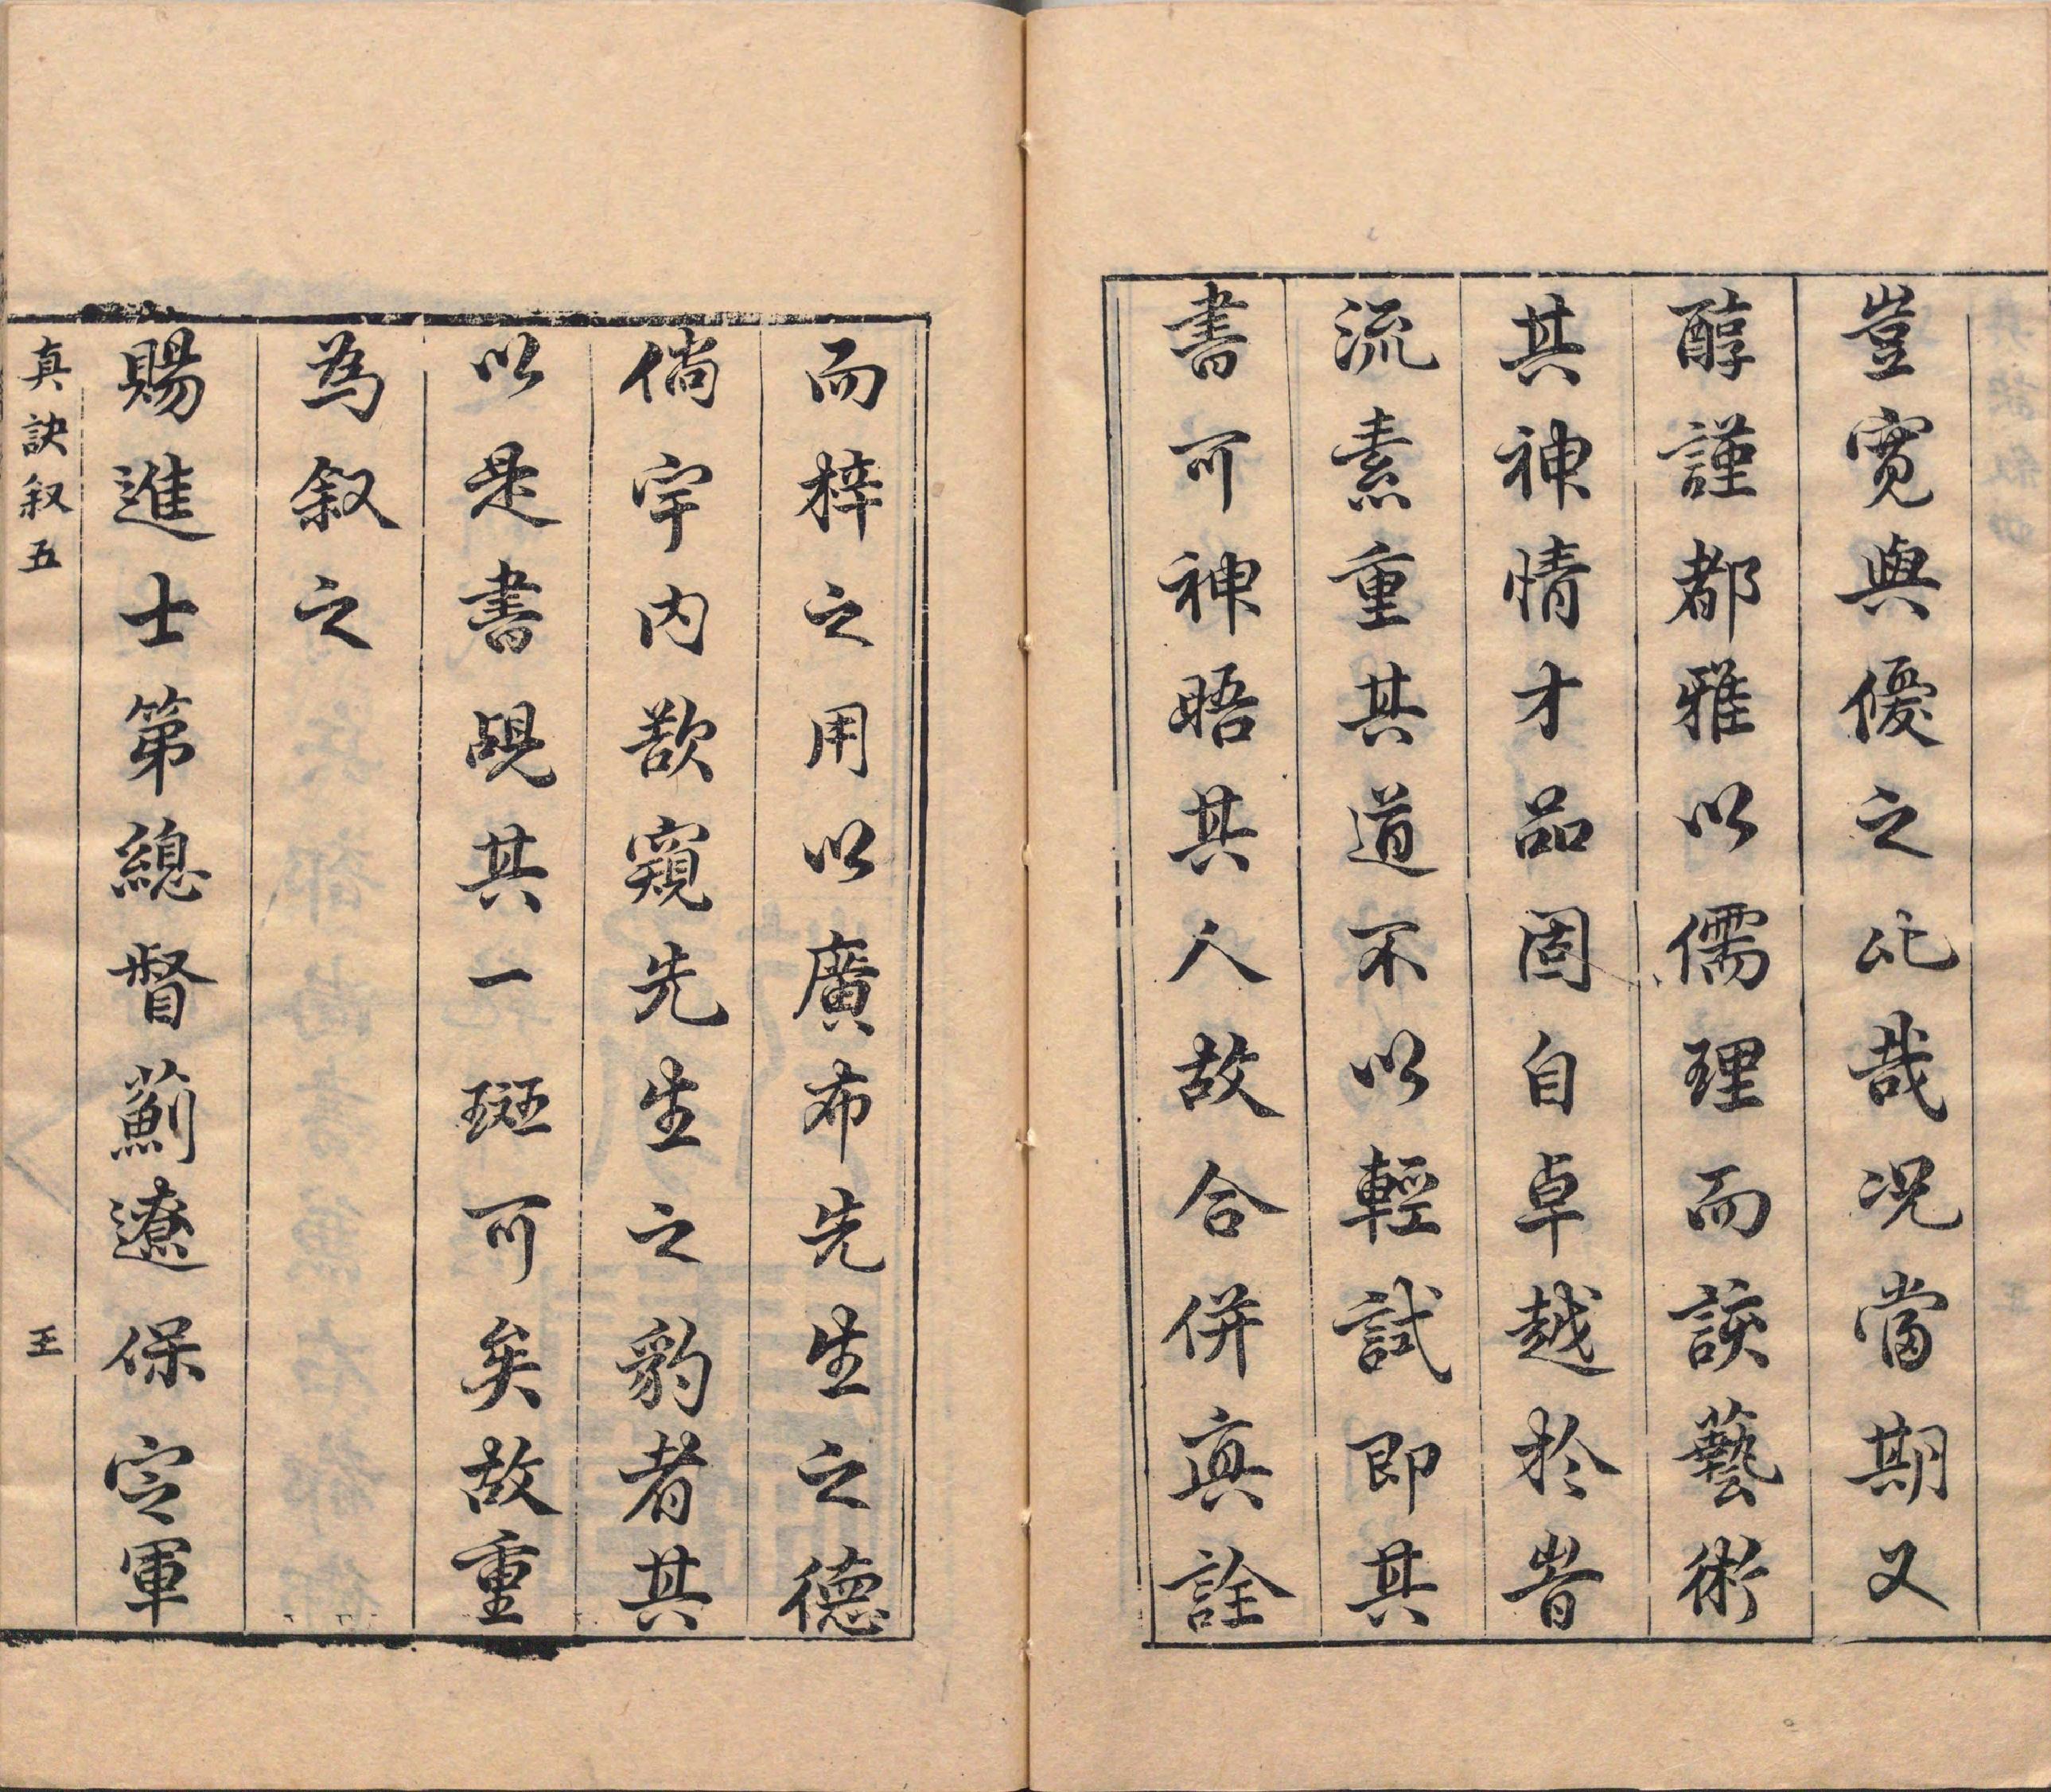 豈寬與優之比哉况當期又
醇謹都雅以儒理而談藝術
其神情才品固自卓越於昔
流素重其道不以輕試即其
書可神晤其人故合併真詮
而梓之用以廣布先生之德
倘宇内欲窺先生之豹者其
以是書覘其一斑可矣故重
為叙之
賜進士第總督薊遼保定軍
真訣叙五 王